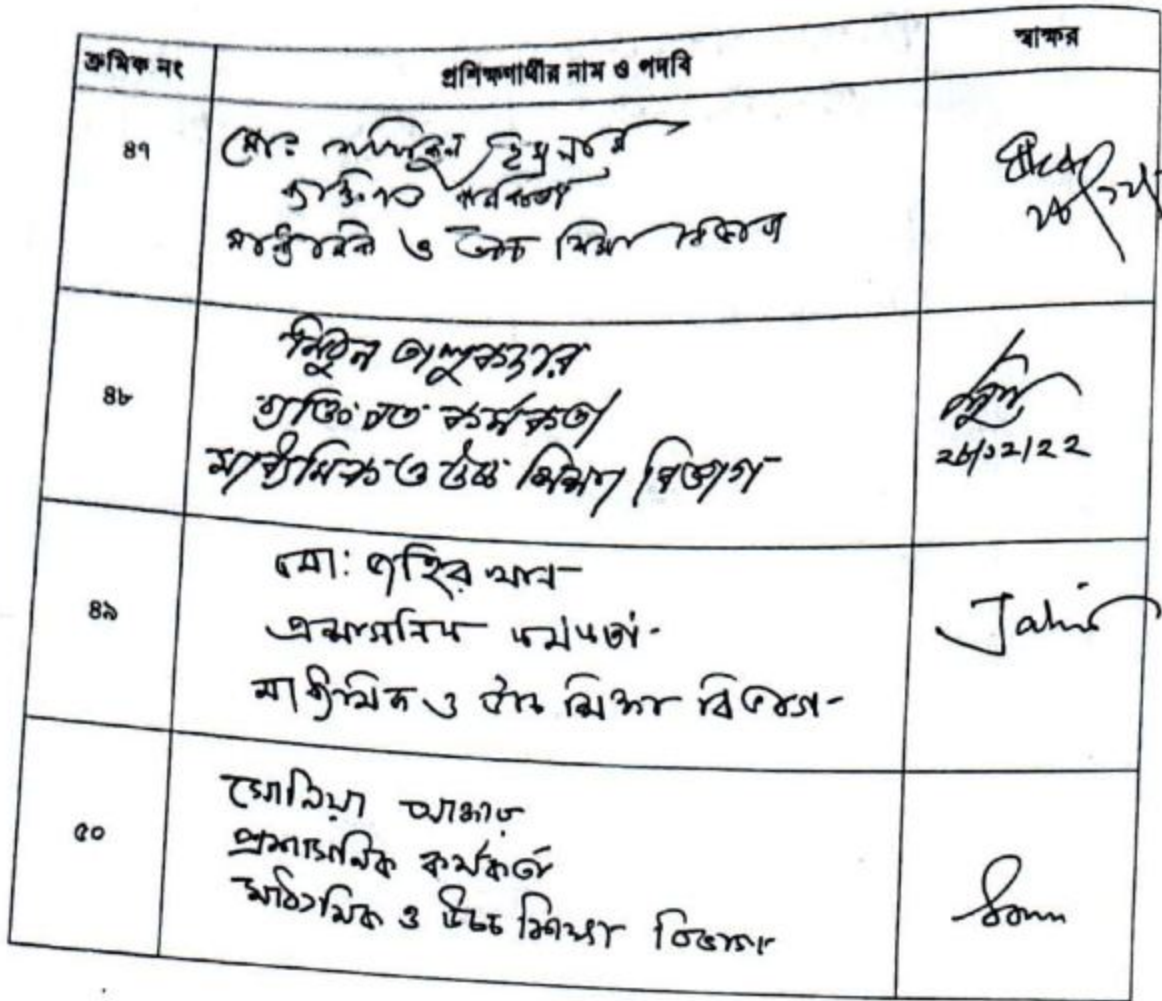 ক্রমিক নং প্রশিক্ষণার্থীর নাম ও পদবি স্বাক্ষর
৪৭ মোঃ ইসলাম
ব্যক্তিগত কর্মকর্তা
মাধ্যমিক ও উচ্চ শিক্ষা বিভাগ
৪৮ মিঠুন তালুকদার
ব্যক্তিগত কর্মকর্তা
মাধ্যমিক ও উচ্চ শিক্ষা বিভাগ
২৮/১২/২২
৪৯ মো: জহির খান
প্রশাসনিক কর্মকর্তা
মাধ্যমিক ও উচ্চ শিক্ষা বিভাগ
Jahir
৫০ সোনিয়া আক্তার
প্রশাসনিক কর্মকর্তা
মাধ্যমিক ও উচ্চ শিক্ষা বিভাগ